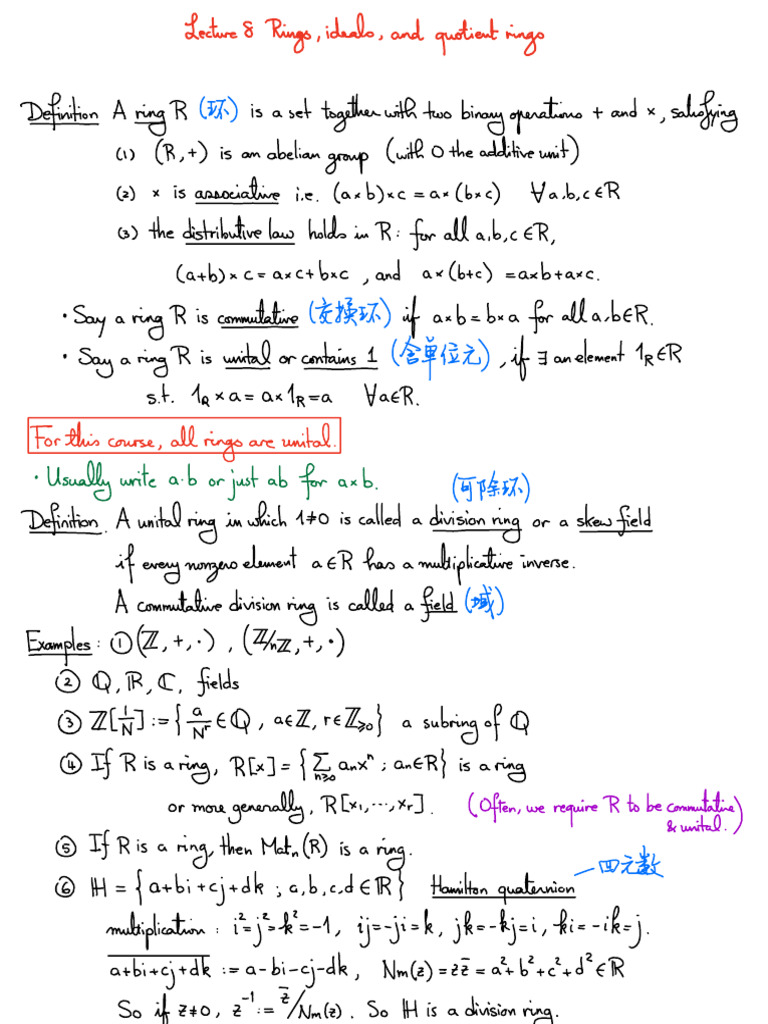 Lecture 8 Rings, ideals, and quotient rings
Definition A ring R (环) is a set together with two binary operations + and ×, satisfying
(1) (R,+) is an abelian group (with 0 the additive unit)
(2) × is associative i.e. (a×b)×c = a×(b×c) ∀a,b,c∈R
(3) the distributive law holds in R: for all a,b,c∈R,
(a+b)×c = a×c+b×c , and a×(b+c) = a×b+a×c.
• Say a ring R is commutative (交换环) if a×b = b×a for all a,b∈R.
• Say a ring R is unital or contains 1 (含单位元), if ∃ an element 1_R∈R
s.t. 1_R×a = a×1_R = a ∀a∈R.
For this course, all rings are unital.
• Usually write a·b or just ab for a×b.
(可除环)
Definition. A unital ring in which 1≠0 is called a division ring or a skew field
if every nonzero element a∈R has a multiplicative inverse.
A commutative division ring is called a field (域)
Examples: ① (ℤ,+,·) , (ℤ/nℤ,+,·)
② ℚ, ℝ, ℂ, fields
③ ℤ[1/N] := {a/N^r ∈ℚ, a∈ℤ, r∈ℤ_≥0} a subring of ℚ
④ If R is a ring, R[x] = {∑_{n≥0} a_n x^n ; a_n∈R} is a ring
or more generally, R[x_1,⋯,x_r]. (Often, we require R to be commutative
& unital.)
⑤ If R is a ring, then Mat_n(R) is a ring.
⑥ ℍ = {a+bi+cj+dk ; a,b,c,d∈ℝ} Hamilton quaternion —四元数
multiplication: i²=j²=k²=-1, ij=-ji=k, jk=-kj=i, ki=-ik=j.
\overline{a+bi+cj+dk} := a-bi-cj-dk, Nm(z) = z\bar{z} = a²+b²+c²+d² ∈ℝ
So if z≠0, z^{-1} := \bar{z}/Nm(z). So ℍ is a division ring.